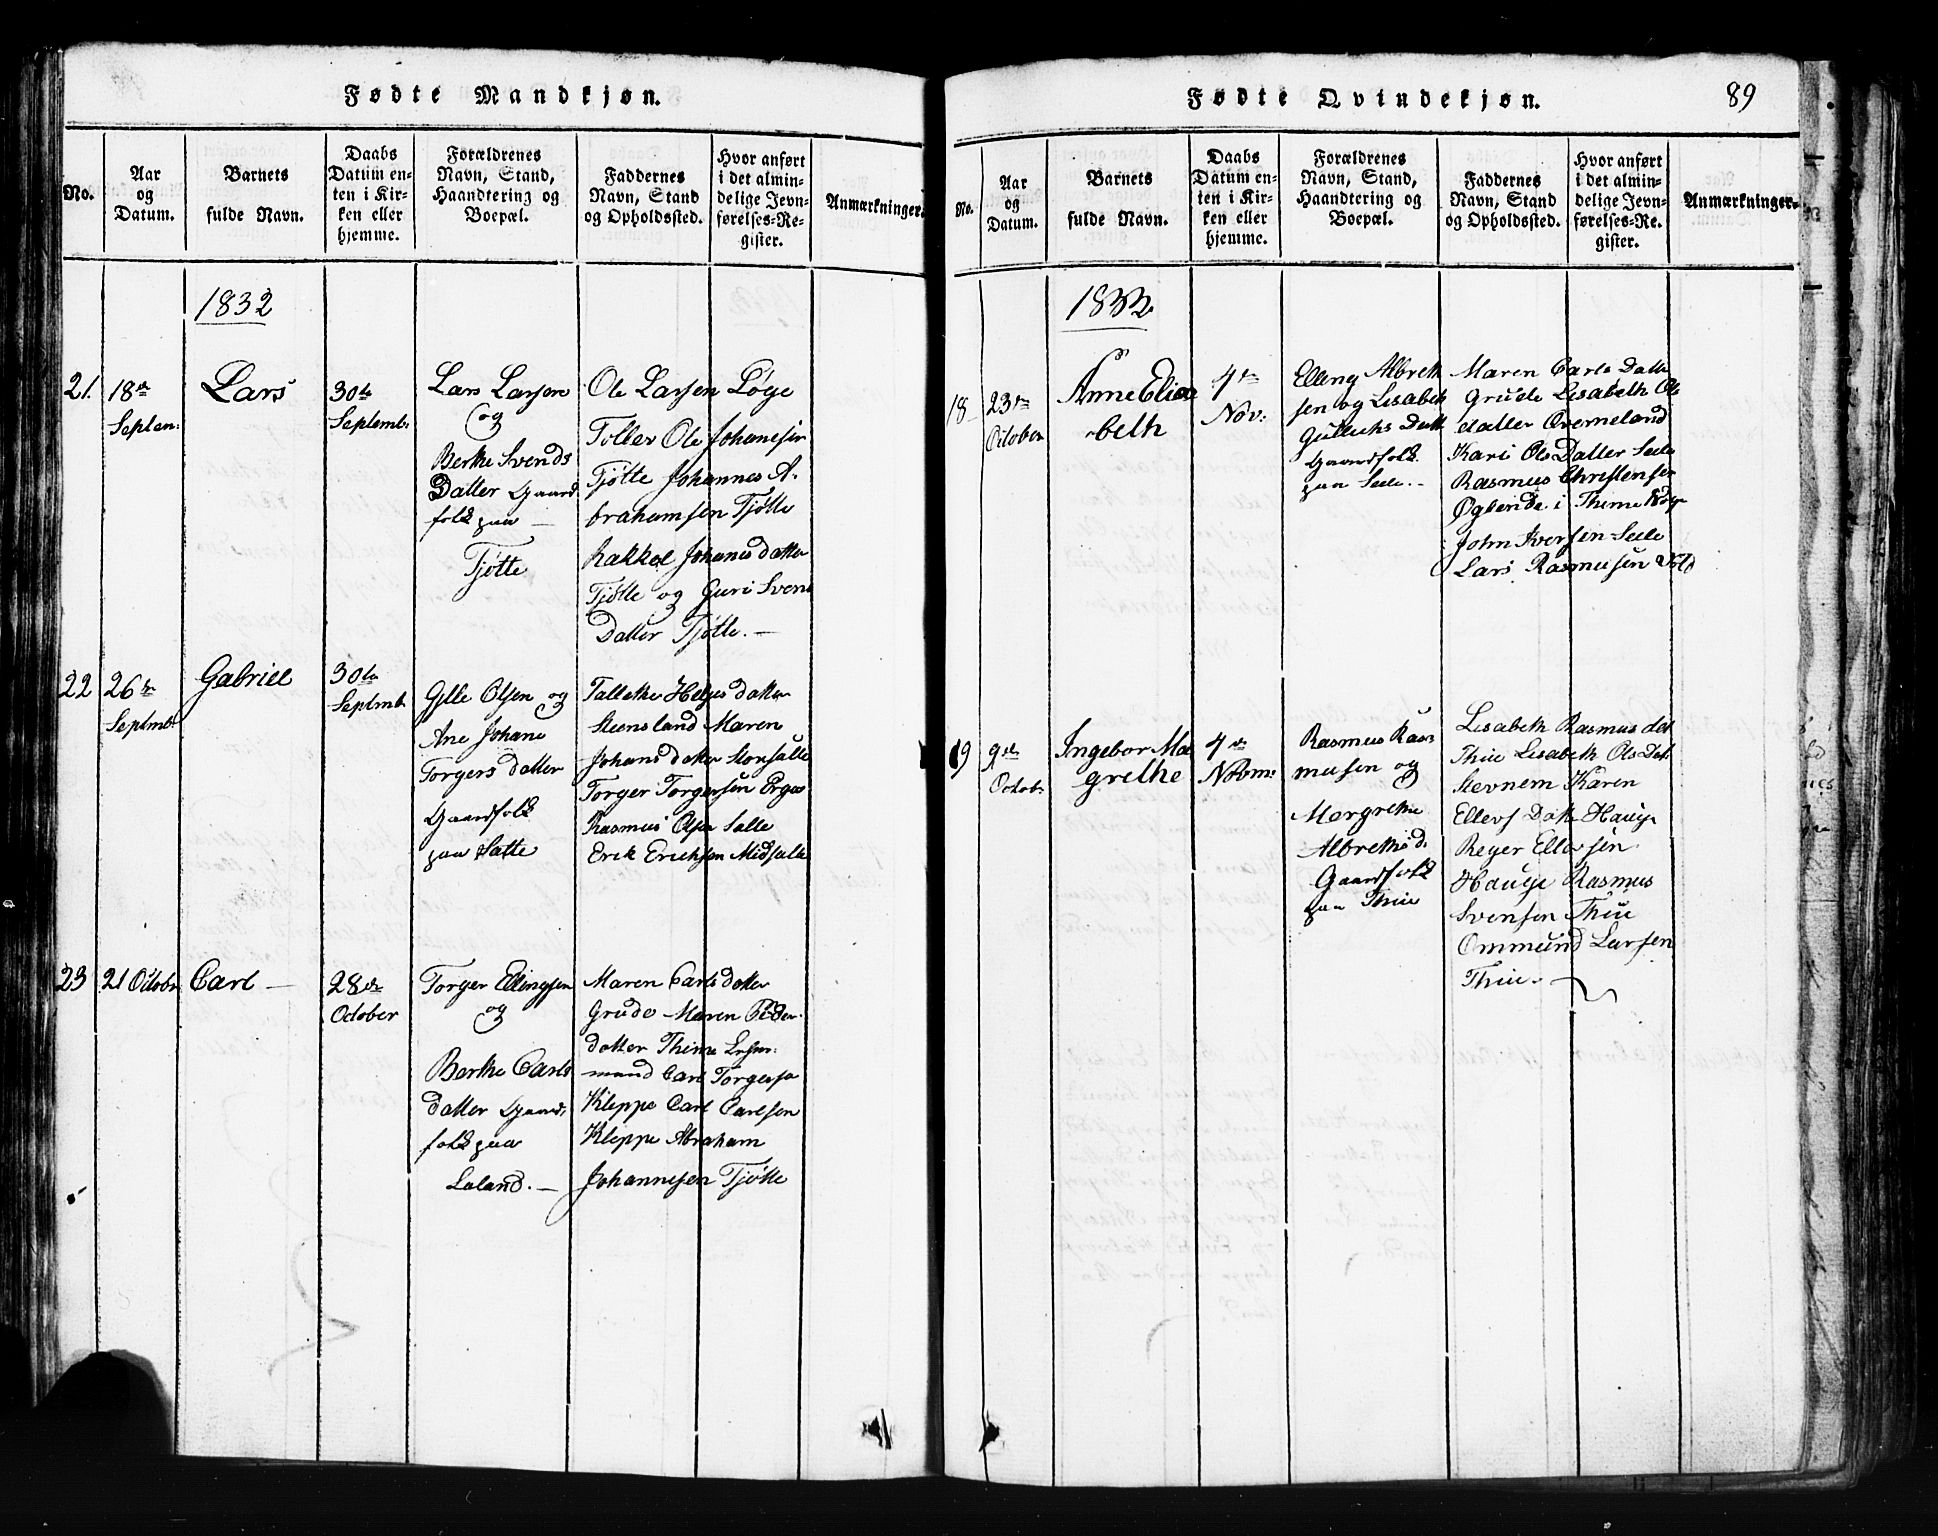 Fødte Mandkjøn.
No.
Aar
og
Datum.
Barnets
fulde Navn.
Daabs
Datum en-
ten i Kir-
ken eller
hjemme.
Forældrenes
Navn, Stand,
Haandtering og
Boepæl.
Faddernes
Navn, Stand
og Opholdssted.
Hvor anført
i det almin-
delige Jevn-
førelses-Re-
gister.
Anmærkninger.
1832
21.
18de
Septem:
Lars
30te
Septemb:
Lars Larsen
og
Berthe Svends
Datter Gaard
folk paa
Tjøtte
Ole Larsen Løge
Tollev Ols Johanesen
Tjøtte Johannes A-
brahamsen Tjøtte
Rakkel Johanes datter
Tjøtte og Guri Svens
Datter Tjøtte. —
22
26de
Septmb:
Gabriel
30te
Septmb.
Olsen og
Ane Johane
Torgers datter
Gaardfolk
paa Salte
Helges datter
Steensland Maren
Johans datter Storsalte
Torger Torgersen Erga
Rasmus Olsen Salte
Erik Erichsen Midsalte
23
21 Octobr
Carl —
28de
October
Torger Ellingsen
og
Berthe Carls
datter Gaard:
folk paa
Laland. —
Maren Carls datter
Grude Maren Peder-
datter Thime
mand Carl Torgersen
Kleppe Carl Carlsen
Kleppe Abraham
Johannesen Tjøtte
Fødte Qvindekjøn.
89
No.
Aar
og
Datum.
Barnets
fulde Navn.
Daabs
Datum en-
ten i Kir-
ken eller
hjemme.
Forældrenes
Navn, Stand,
Haandtering og
Boepæl.
Faddernes
Navn, Stand
og Opholdssted.
Hvor anført
i det almin-
delige Jevn-
førelses-Re-
gister.
Anmærkninger.
1832.
18
23de
October
Anne Elisa
beth
4de
Nov:
Elling Albreth
sen og Lisabeth
Gulleichs Datt
Gaardfolk
paa Seele. -
Maren Carls Datter
Grude Lisabeth Ols
datter Orreneland
Kari Ols Datter Seele
Rasmus Christensen
Øglende i Thime
John Iversen Seele
Lars Rasmusen
19
9de
Octob:
Ingebor Ma
grethe
4de
Novbm:
Rasmus Ras
musen og
Margrethe
Albreths d.
Gaardfolk
paa Thue
Lisabeth Rasmus dat
Thue Lisabeth Ols Dat
Stevnem Karen
Ellevs Datt Hauge
Reyer Ellevsen
Hauge Rasmus
Svensen Thue
Ommund Larsen
Thue. —